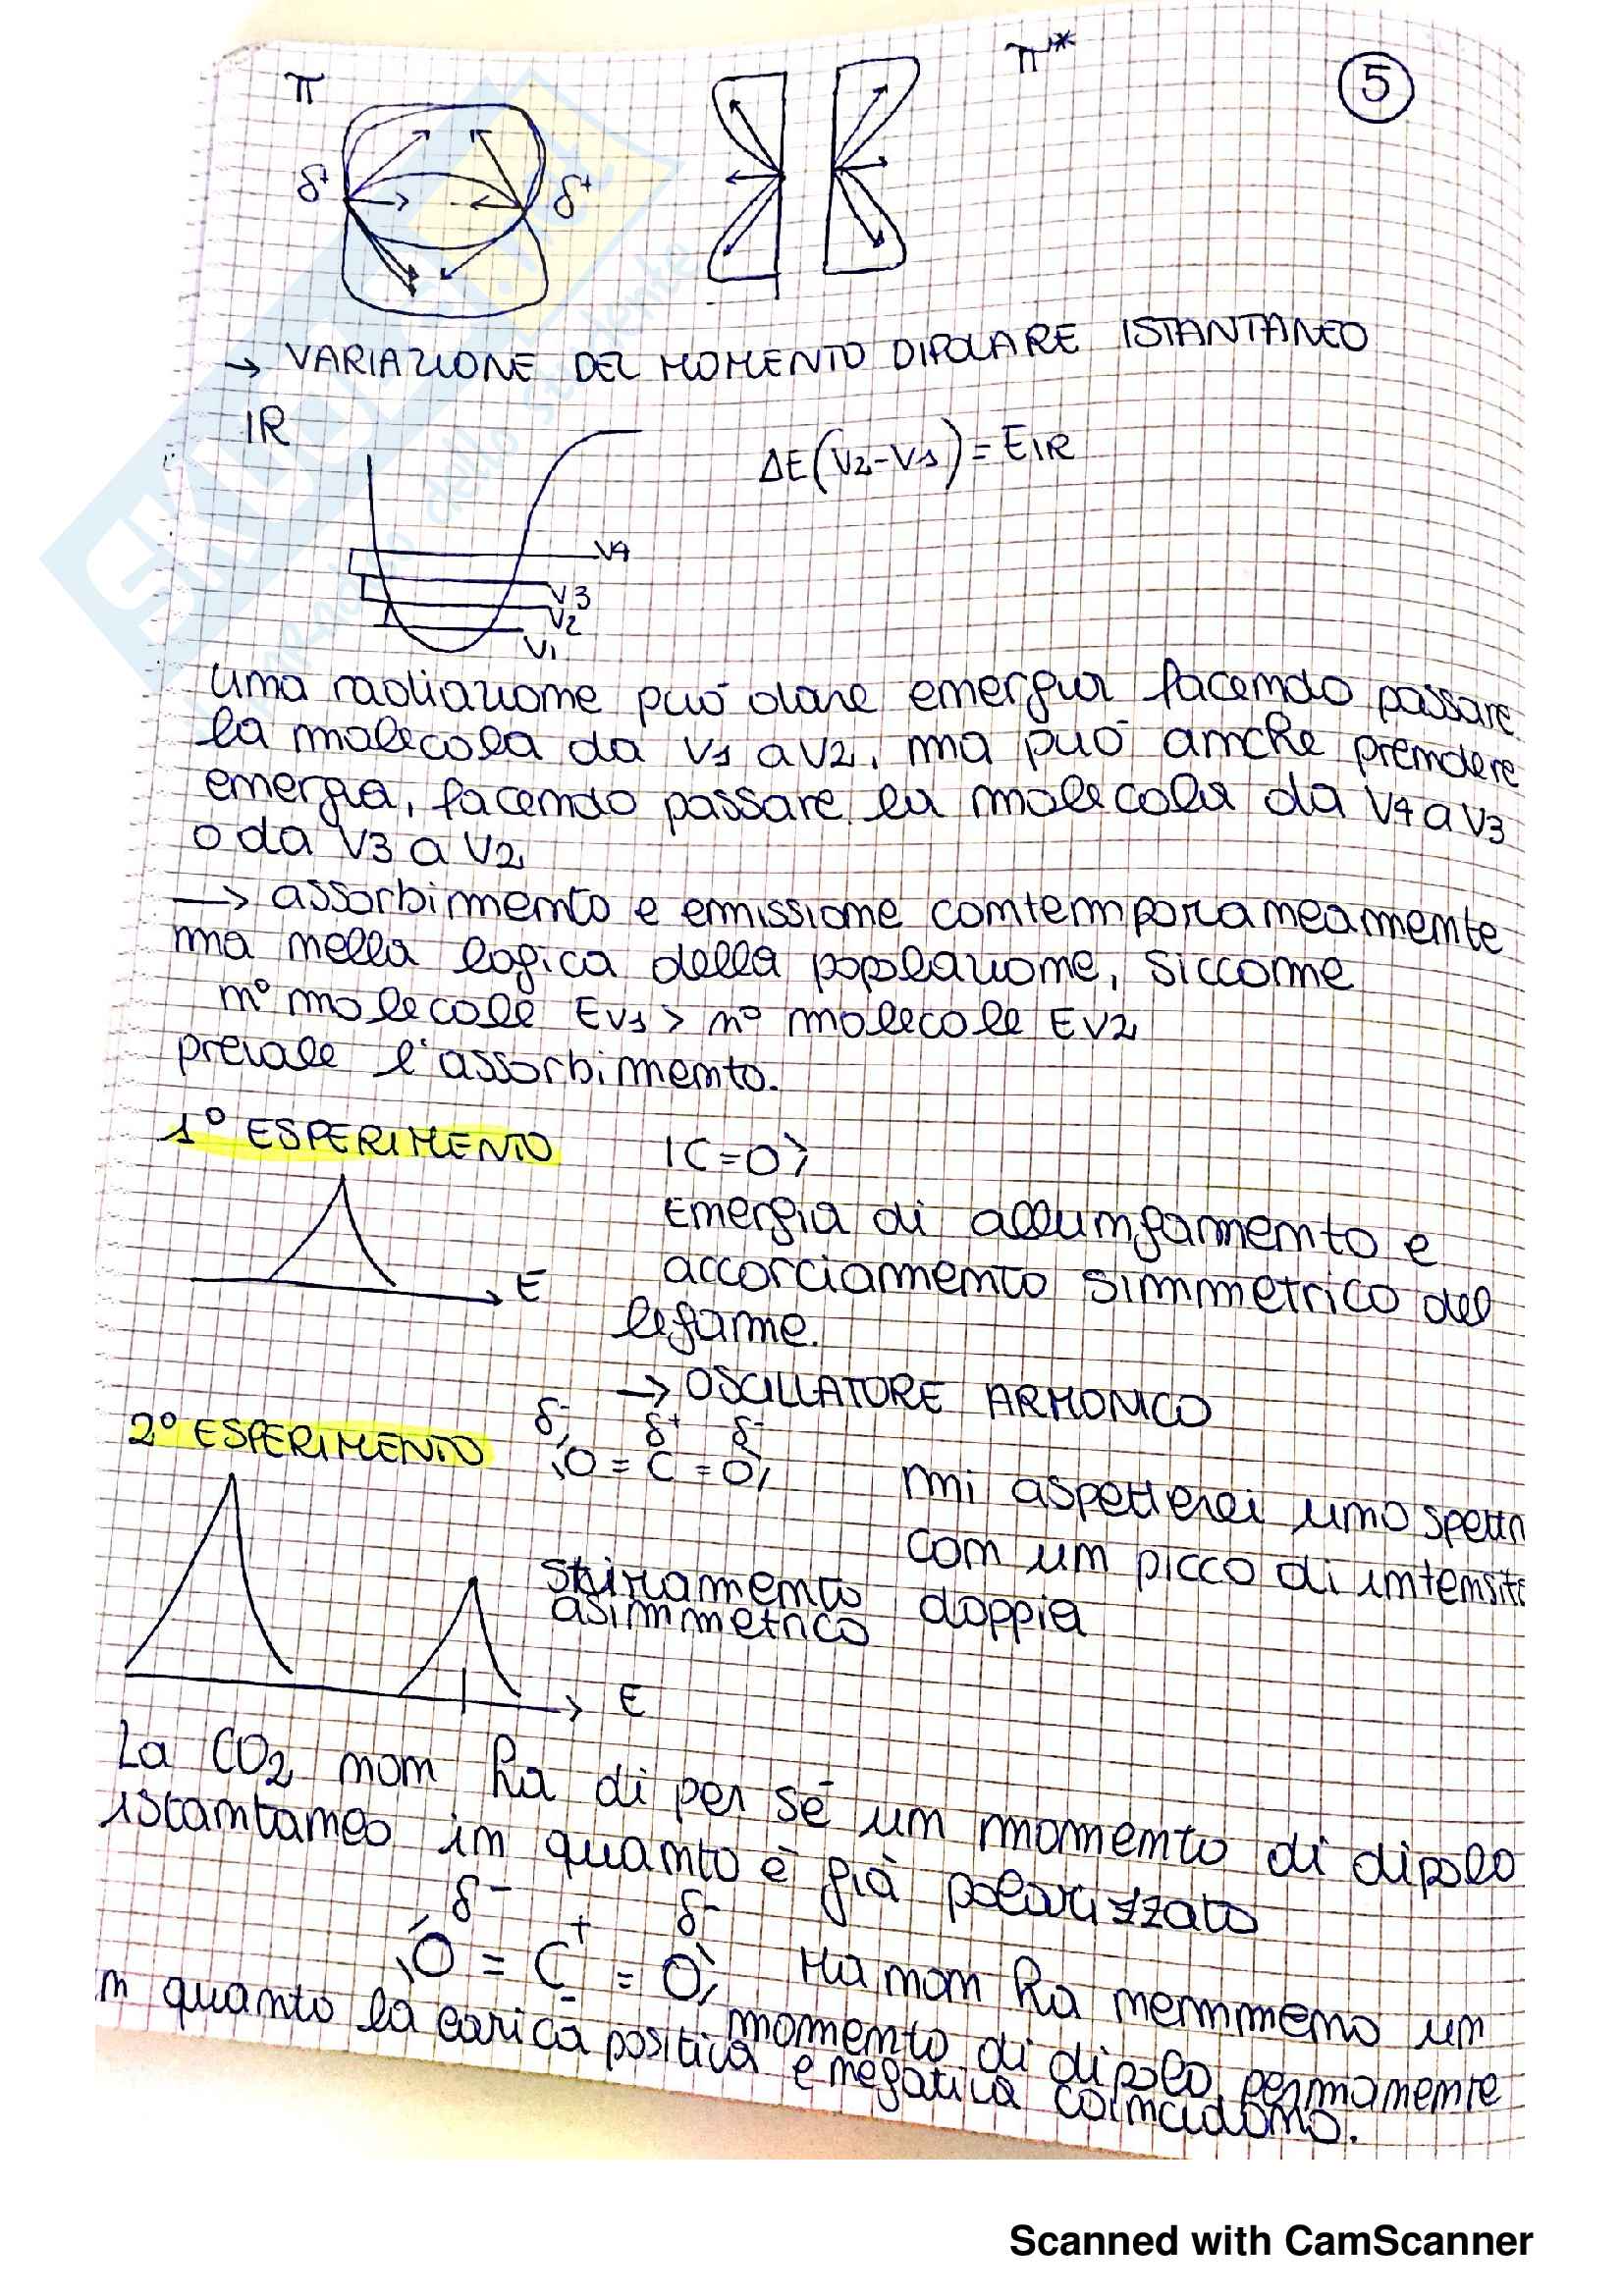 π
π*
5
δ+
δ+
→ VARIAZIONE DEL MOMENTO DIPOLARE ISTANTANEO
IR
ΔE(V2-V1)=EIR
V4
V3
V2
V1
una radiazione può dare energia facendo passare
la molecola da V1 a V2, ma può anche prendere
energia, facendo passare la molecola da V4 a V3
o da V3 a V2
→ assorbimento e emissione contemporaneamente
ma nella logica della popolazione, siccome
n° molecole EV1 > n° molecole EV2
prevale l'assorbimento.
1° ESPERIMENTO
|C=O〉
Energia di allungamento e
accorciamento simmetrico del
legame.
E
→ OSCILLATORE ARMONICO
2° ESPERIMENTO
δ- δ+ δ-
O = C = O
mi aspetterei uno spettr
con un picco di intensità
doppia
stiramento
asimmetrico
E
La CO2 non ha di per sé un momento di dipolo
istantaneo in quanto è già polarizzato
δ- + δ-
O = C = O Ma non ha nemmeno un
momento di dipolo permanente
in quanto la carica positiva e negativa coincidono.
SKUOLA.net
dello studente
Scanned with CamScanner